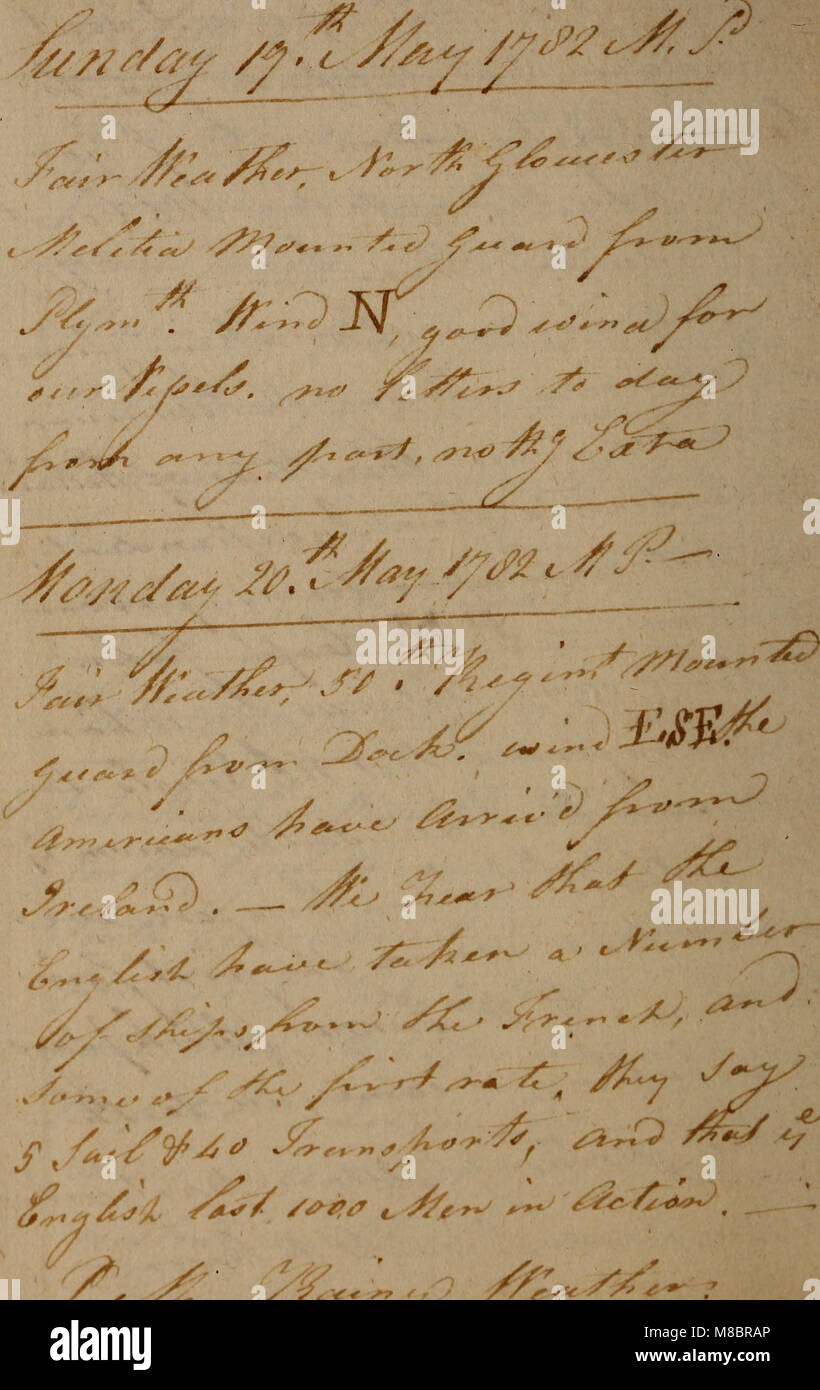 Sunday 19.th May 1782 M. P.
Fair Weather, North Gloucester
Melitia Mounted Guard from
Plym.th Wind N, good wind for
our Vessels. no letters to day
from any part, noth.g Extra
Monday 20.th May 1782 M P.—
Fair Weather, 50.th Regimt Mounted
guard from Dock. wind ESE. the
Americans have Arriv'd from
Ireland. — We hear that the
English have taken a Number
of ships from the French, and
some of the first rate, they say
5 Sail & 40 Transports, and that ye
English lost 1000 Men in Action. —
P. M. Rainy Weather.
alamy
Image ID: M8BRAP
www.alamy.com